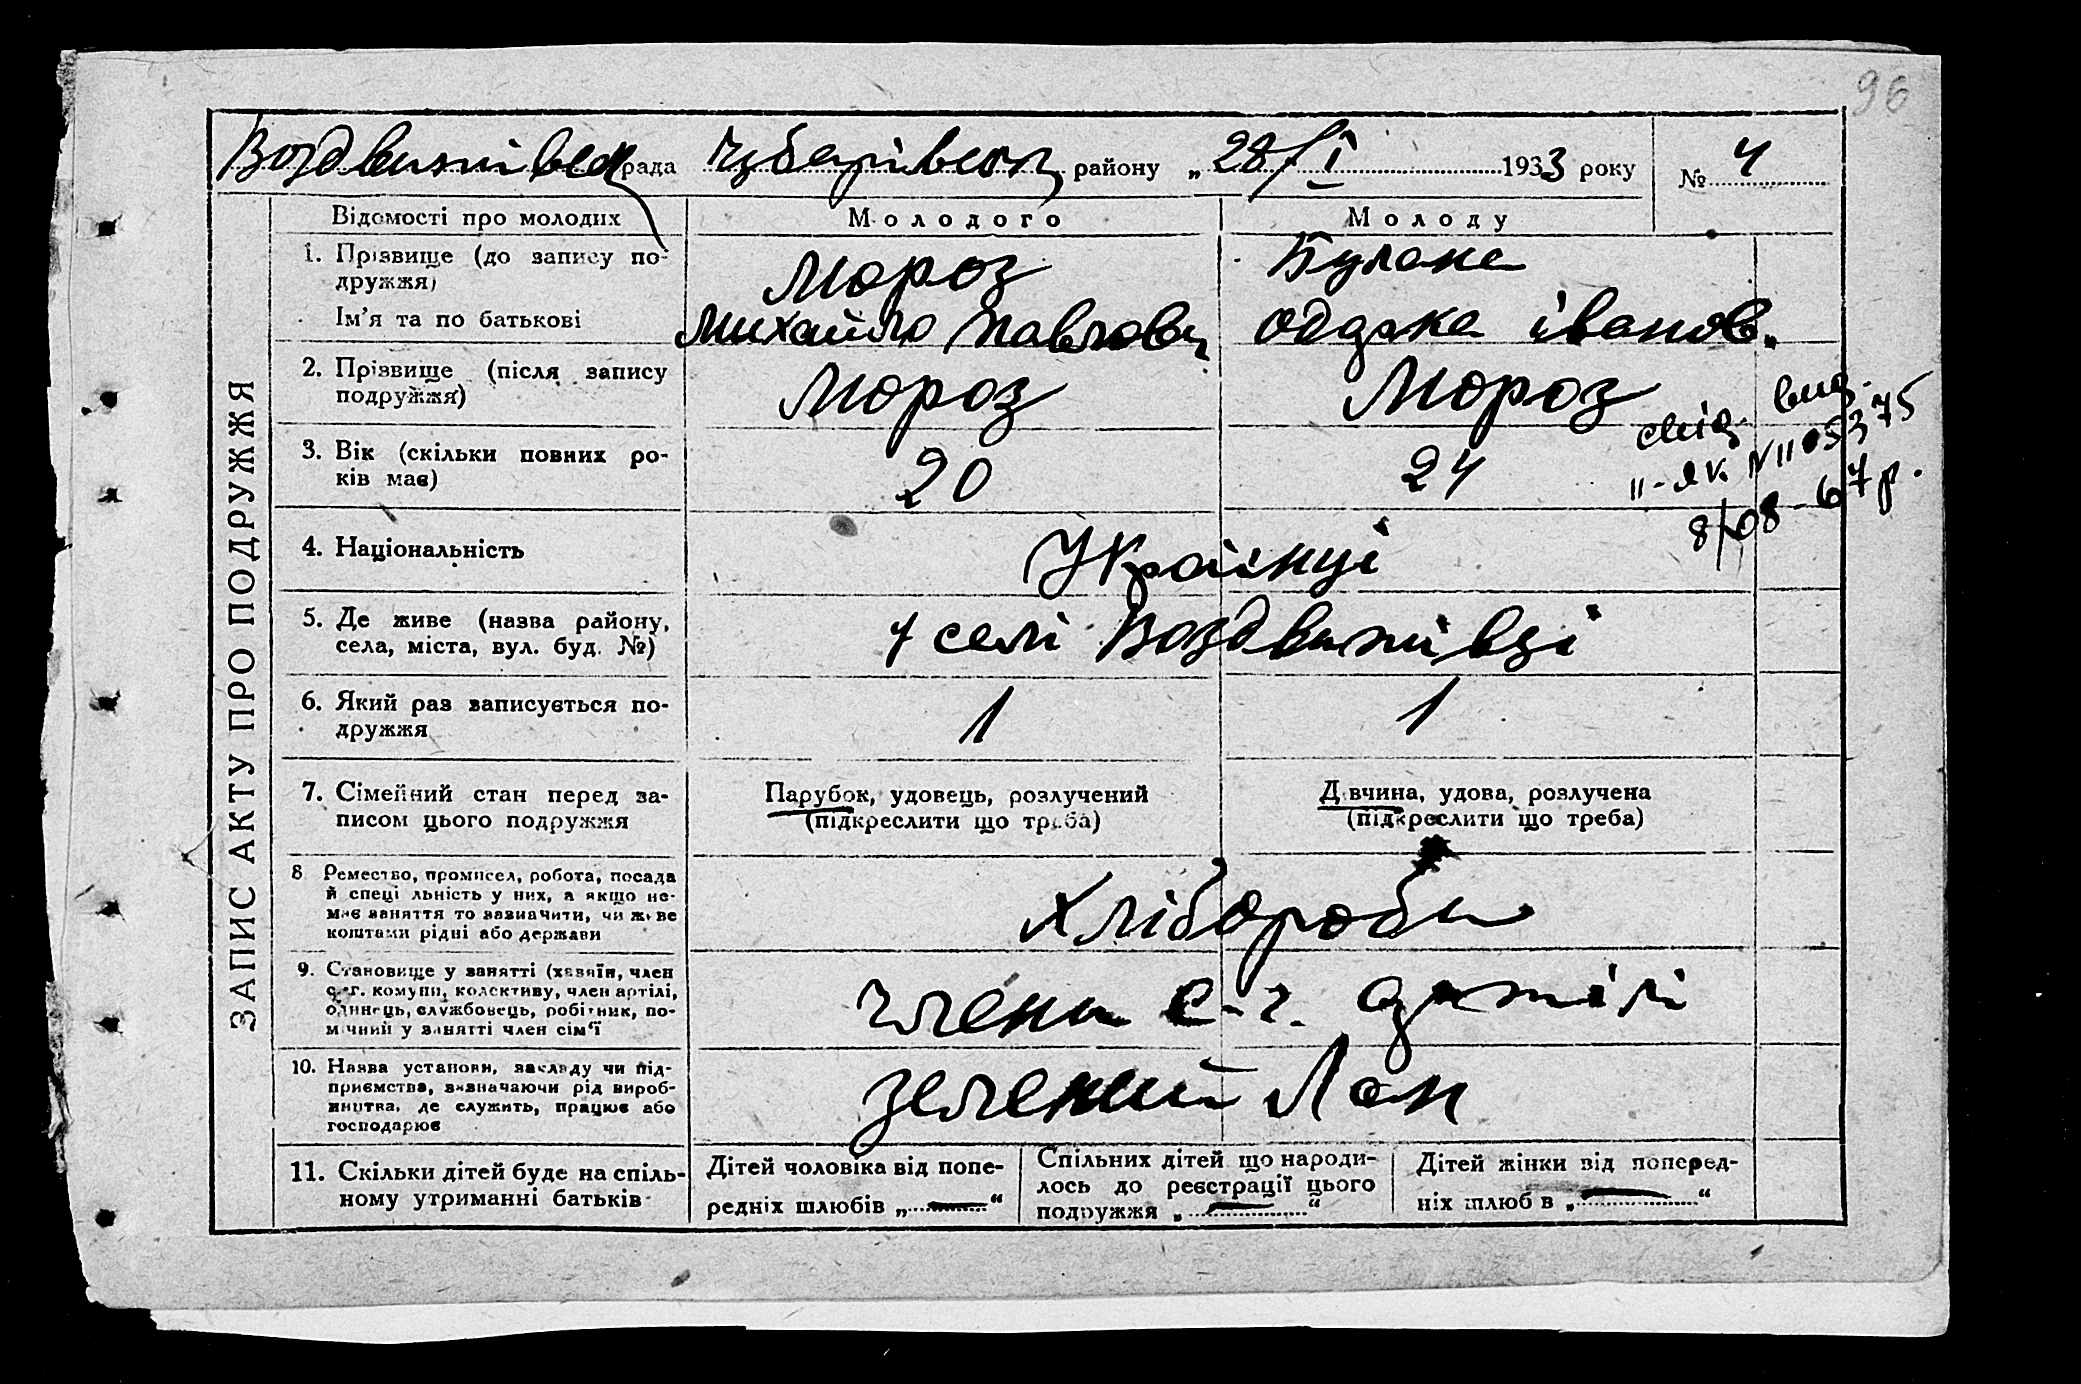 96
Воздвижівська рада Чубарівськ. району „28/I 1933 року № 4
ЗАПИС АКТУ ПРО ПОДРУЖЖЯ
Відомості про молодих Молодого Молоду
1. Прізвище (до запису по-
дружжя) Мороз Булана
Ім'я та по батькові Михайло Павлович Одарка Іванов.
2. Прізвище (після запису
подружжя) Мороз Мороз
свід. вид.
II-ЯК № 1105375
8/08-67 р.
3. Вік (скільки повних ро-
ків має) 20 24
4. Національність Українці
5. Де живе (назва району,
села, міста, вул. буд. №) у селі Воздвижівці
6. Який раз записується по-
дружжя 1 1
7. Сімейний стан перед за-
писом цього подружжя
Парубок, удовець, розлучений
(підкреслити що треба)
Дівчина, удова, розлучена
(підкреслити що треба)
8 Ремество, промисел, робота, посада
й спеціяльність у них, а якщо не-
має заняття то зазначити, чи живе
коштами рідні або держави
Хлібороби
9. Становище у занятті (хазяїн, член
с.-г. комуни, колективу, член артілі,
одинець, службовець, робітник, по-
мічний у занятті член сім'ї
члени с.-г. артілі
10. Назва установи, закладу чи під-
приємства, зазначаючи рід вироб-
ництва, де служить, працює або
господарює
зелений Лан
11. Скільки дітей буде на спіль-
ному утриманні батьків
Дітей чоловіка від попе-
редніх шлюбів „—“
Спільних дітей що народи-
лось до реєстрації цього
подружжя „—“
Дітей жінки від поперед-
ніх шлюбів „—“